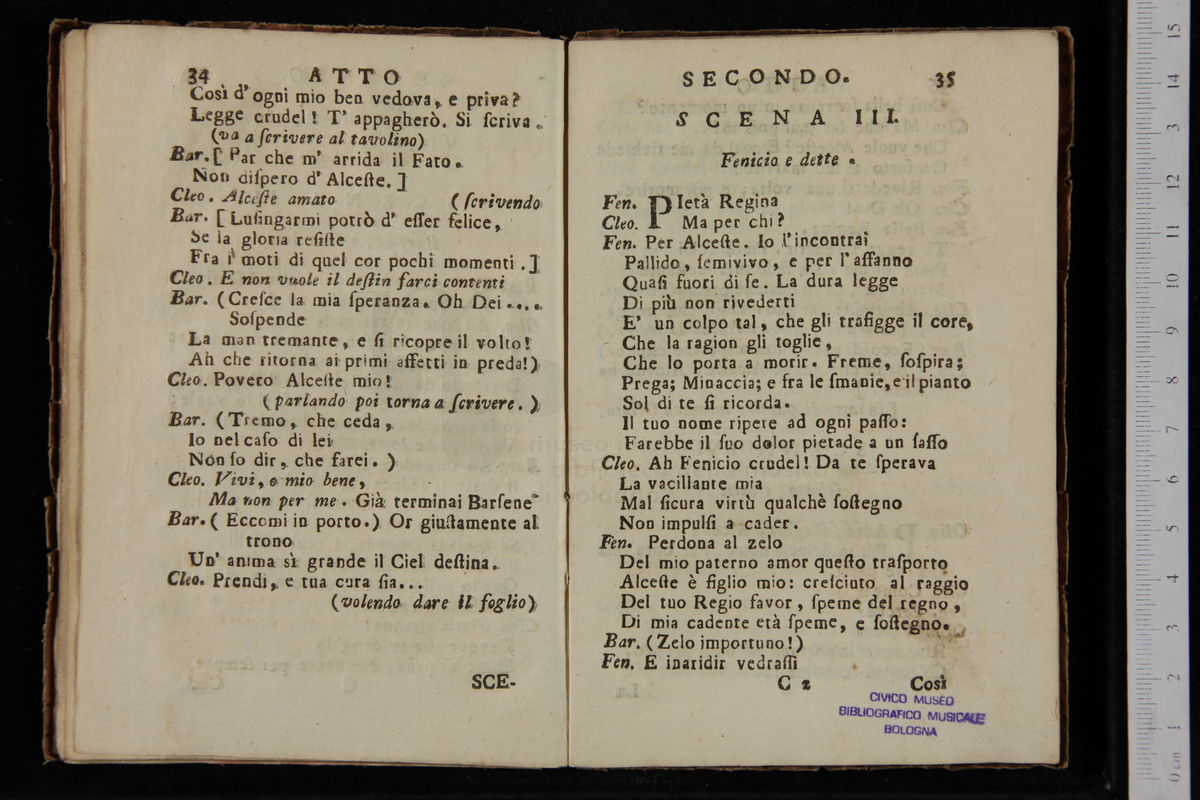 34 ATTO
Così d' ogni mio ben vedova, e priva?
Legge crudel! T' appagherò. Si ſcriva.
(va a ſcrivere al tavolino)
Bar. [ Par che m' arrida il Fato.
Non diſpero d' Alceſte. ]
Cleo. Alceſte amato (ſcrivendo
Bar. [ Luſingarmi potrò d' eſſer felice,
Se la gloria reſiſte
Fra i moti di quel cor pochi momenti. ]
Cleo. E non vuole il deſtin farci contenti
Bar. (Creſce la mia ſperanza. Oh Dei....
Soſpende
La man tremante, e ſi ricopre il volto!
Ah che ritorna ai primi affetti in preda!)
Cleo. Povero Alceſte mio!
(parlando poi torna a ſcrivere. )
Bar. (Tremo, che ceda,
Io nel caſo di lei
Non ſo dir, che farei. )
Cleo. Vivi, o mio bene,
Ma non per me. Già terminai Barſene
Bar. ( Eccomi in porto.) Or giuſtamente al
trono
Un' anima sì grande il Ciel deſtina.
Cleo. Prendi, e tua cura ſia...
(volendo dare il foglio)
SCE-
SECONDO. 35
SCENA III.
Fenicio e dette.
Fen. PIetà Regina
Cleo. Ma per chi?
Fen. Per Alceſte. Io l'incontrai
Pallido, ſemivivo, e per l'affanno
Quaſi fuori di ſe. La dura legge
Di più non rivederti
E' un colpo tal, che gli trafigge il core,
Che la ragion gli toglie,
Che lo porta a morir. Freme, ſoſpira;
Prega; Minaccia; e fra le ſmanie, e il pianto
Sol di te ſi ricorda.
Il tuo nome ripete ad ogni paſſo:
Farebbe il ſuo dolor pietade a un ſaſſo
Cleo. Ah Fenicio crudel! Da te ſperava
La vacillante mia
Mal ſicura virtù qualchè ſoſtegno
Non impulſi a cader.
Fen. Perdona al zelo
Del mio paterno amor queſto traſporto
Alceſte è figlio mio: creſciuto al raggio
Del tuo Regio favor, ſpeme del regno,
Di mia cadente età ſpeme, e ſoſtegno.
Bar. (Zelo importuno!)
Fen. E inaridir vedraſſi
C 2 Così
CIVICO MUSEO
BIBLIOGRAFICO MUSICALE
BOLOGNA
0 cm 1 2 3 4 5 6 7 8 9 10 11 12 13 14 15